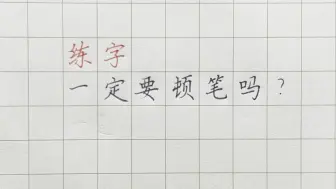 练字
一定要顿笔吗？